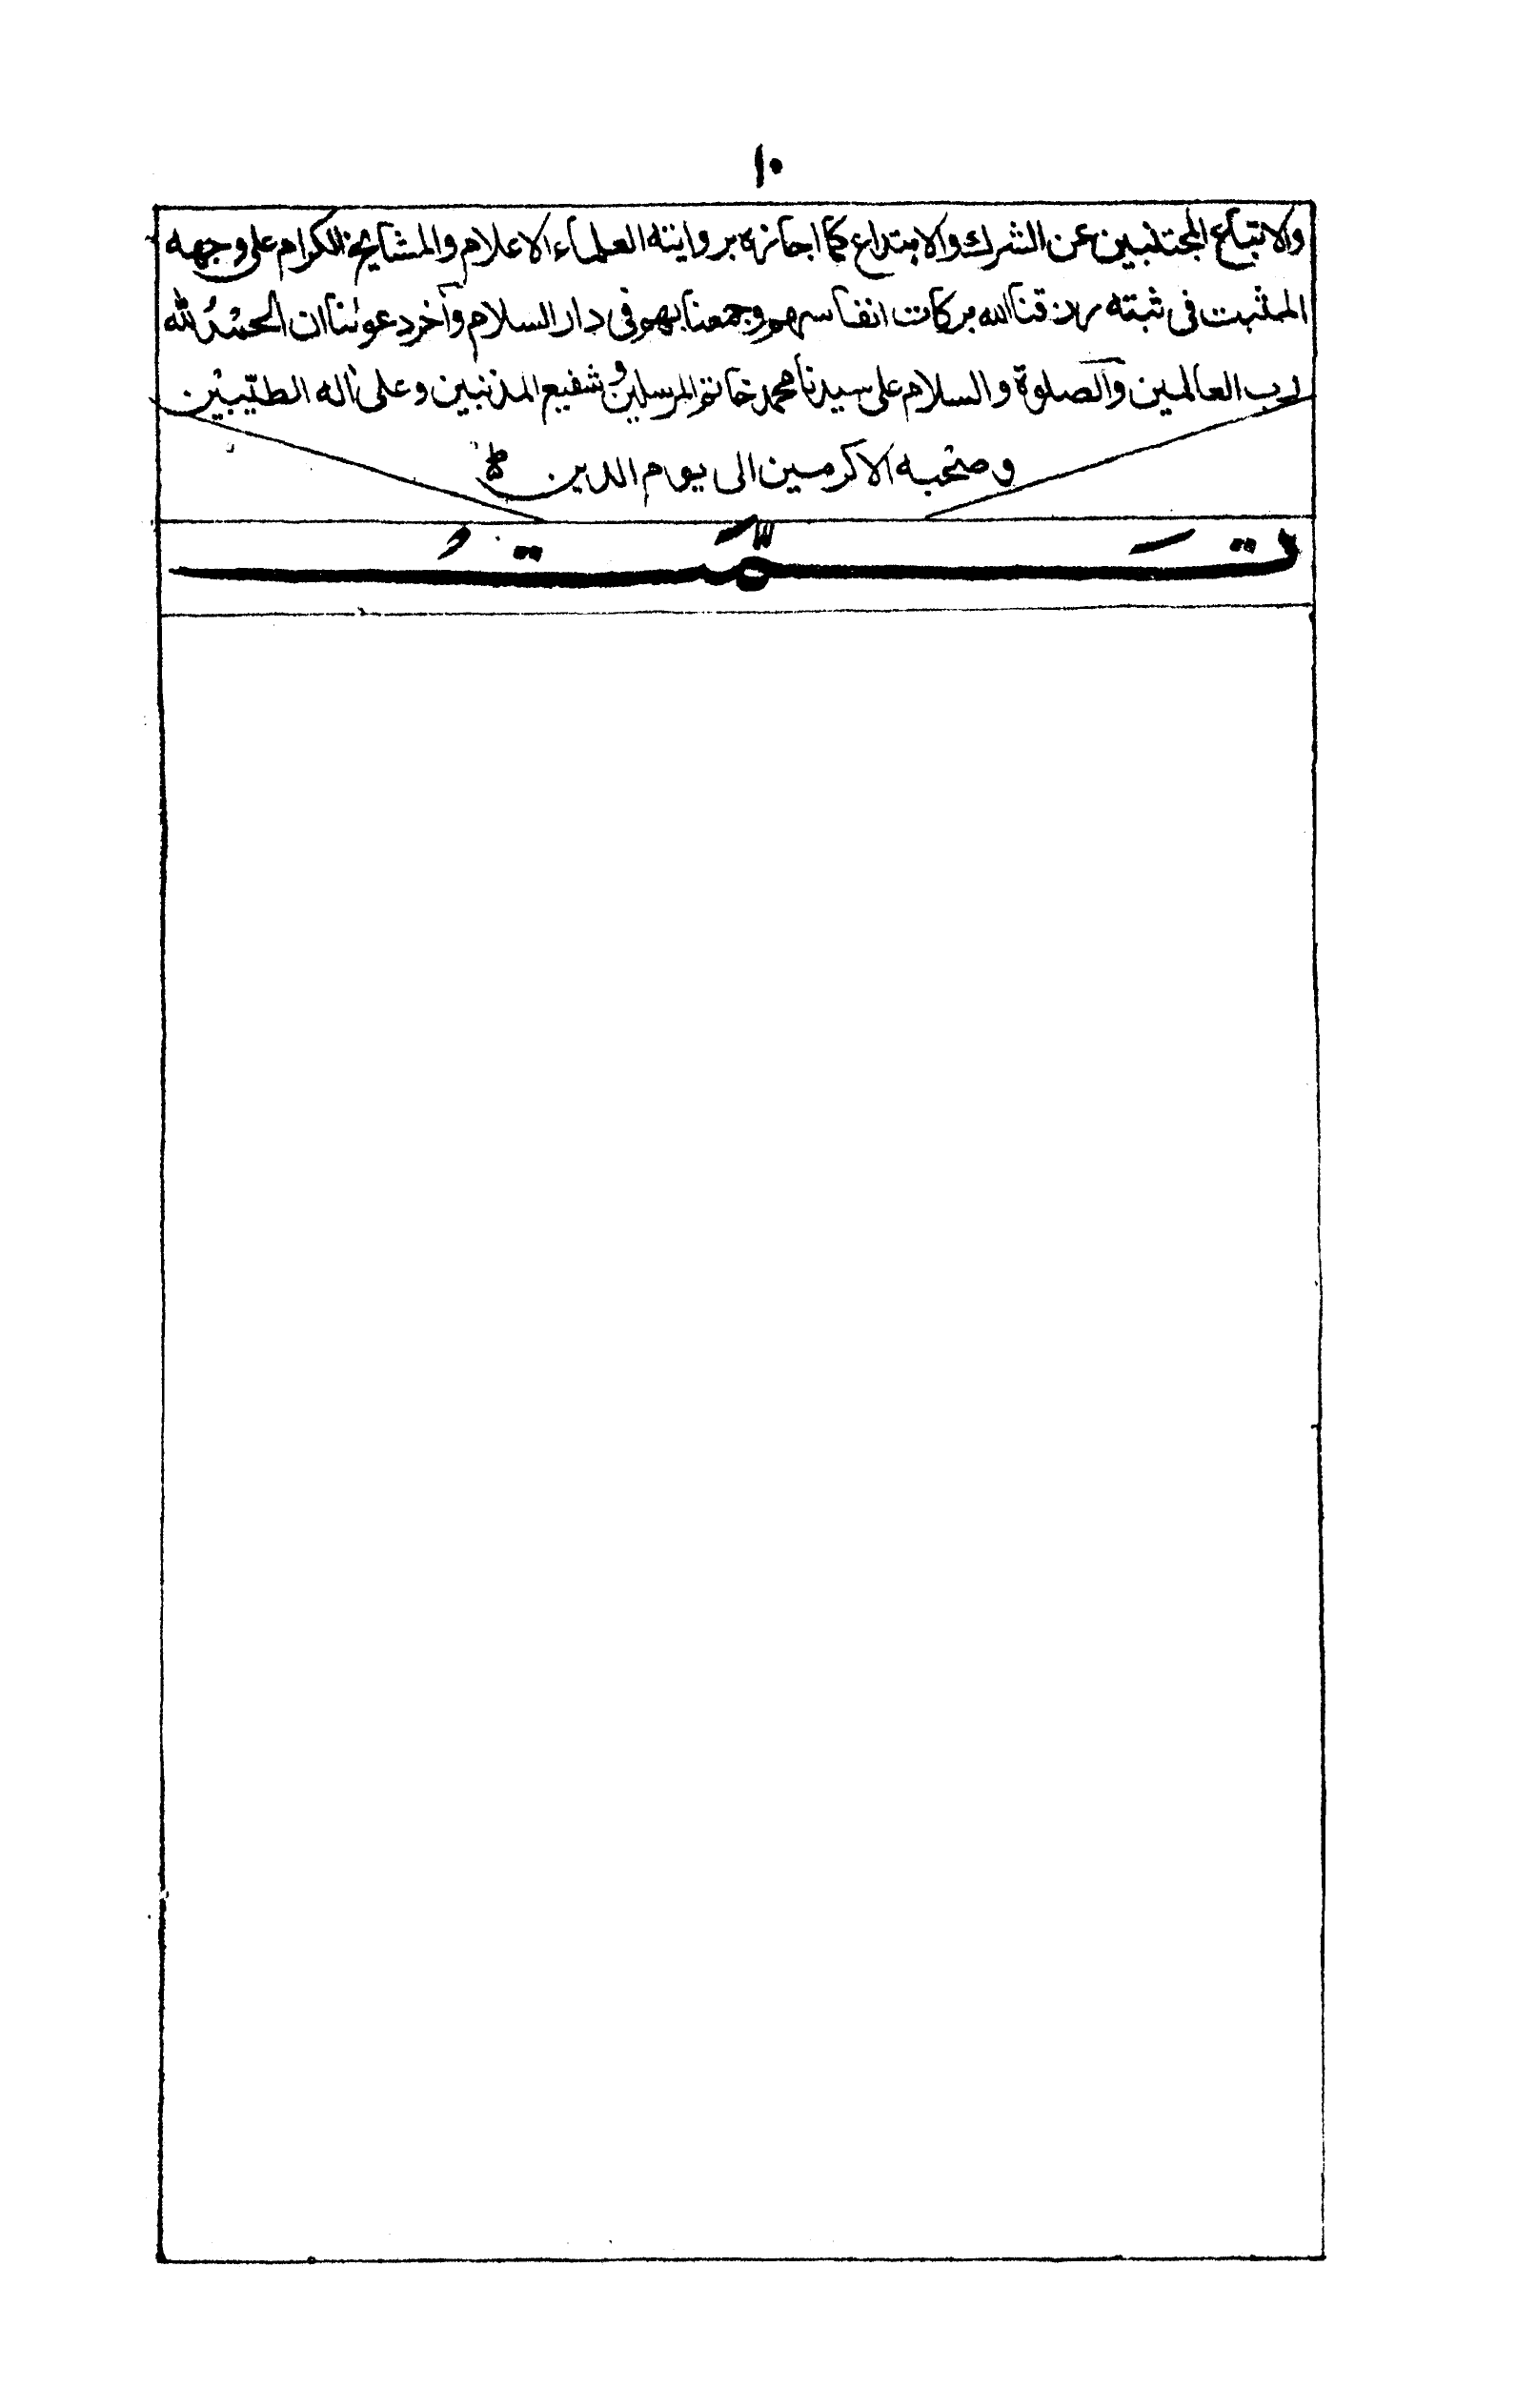 ١٠
والاتباع المجتنبين عن الشرك والابتداع كما اجازه بروايته العلماء الاعلام والمشايخ الكرام على وجهه
المثبت فى ثبته رزقنا الله بركات انفاسهم وجمعنا بهم فى دار السلام وآخر دعوٰنا ان الحمْدُ لله
رب العالمين والصلوة والسلام على سيدنا محمد خاتم المرسلين وشفيع المذنبين وعلى اله الطيّبيْن
وصحبه الاكرمين الى يوم الدين
تَمَّتُ